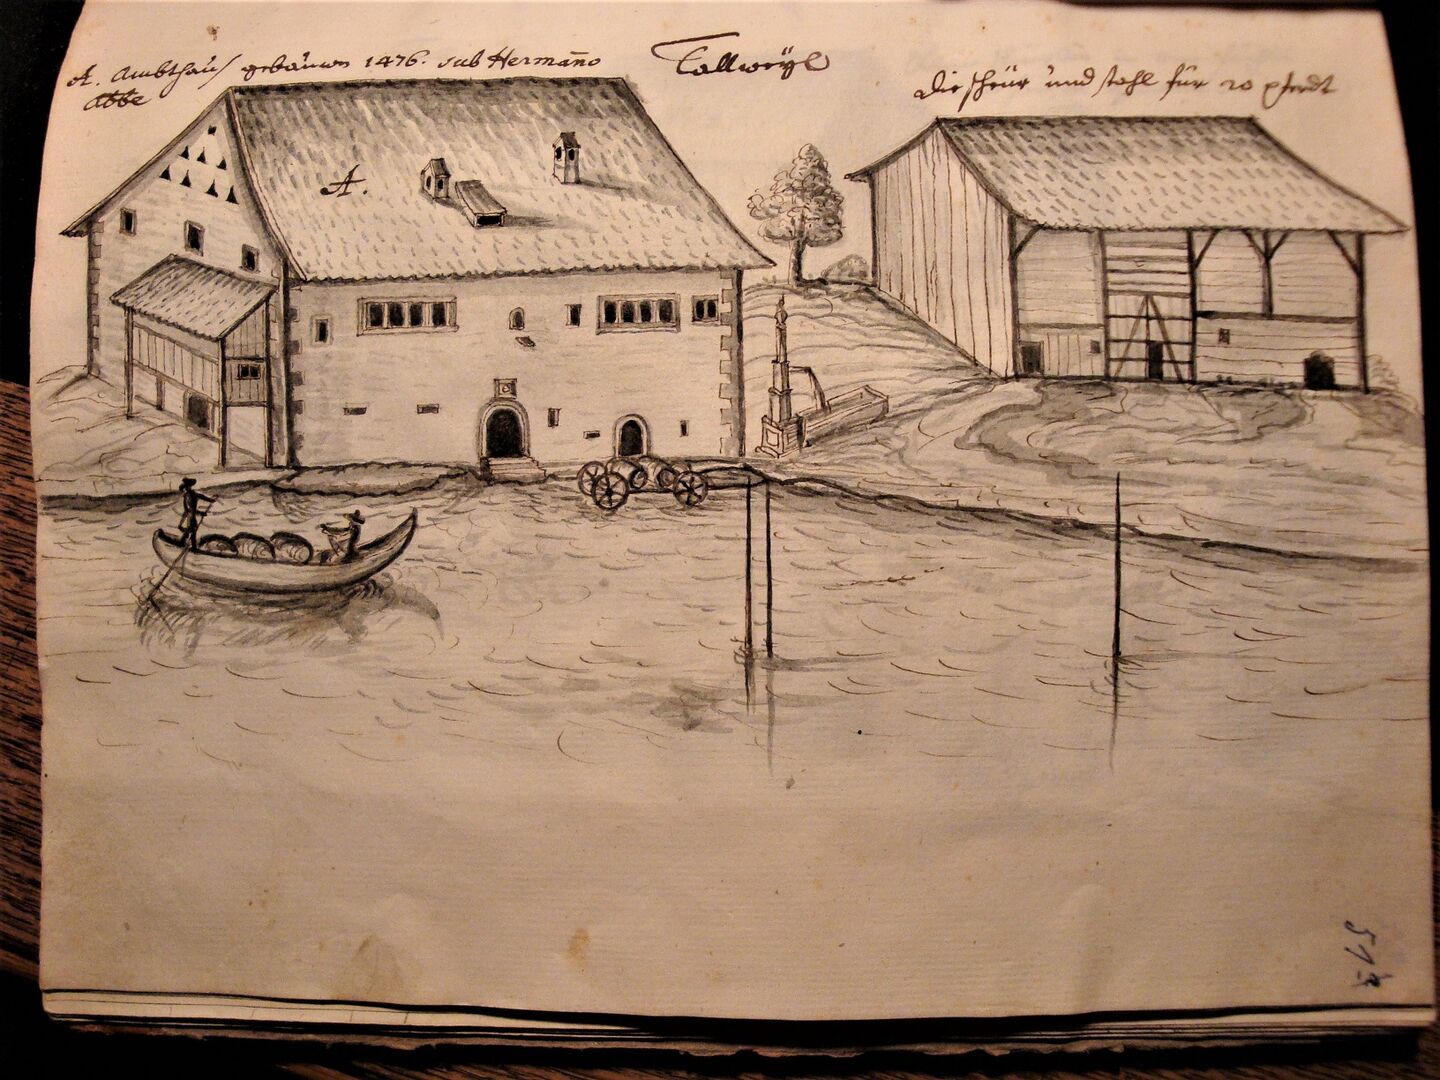 A. Ambthauß gebäuwen 1476. sub Hermāno
Abbe
Tallweÿl
Die scheür und stahl für 20 pferdt
A.